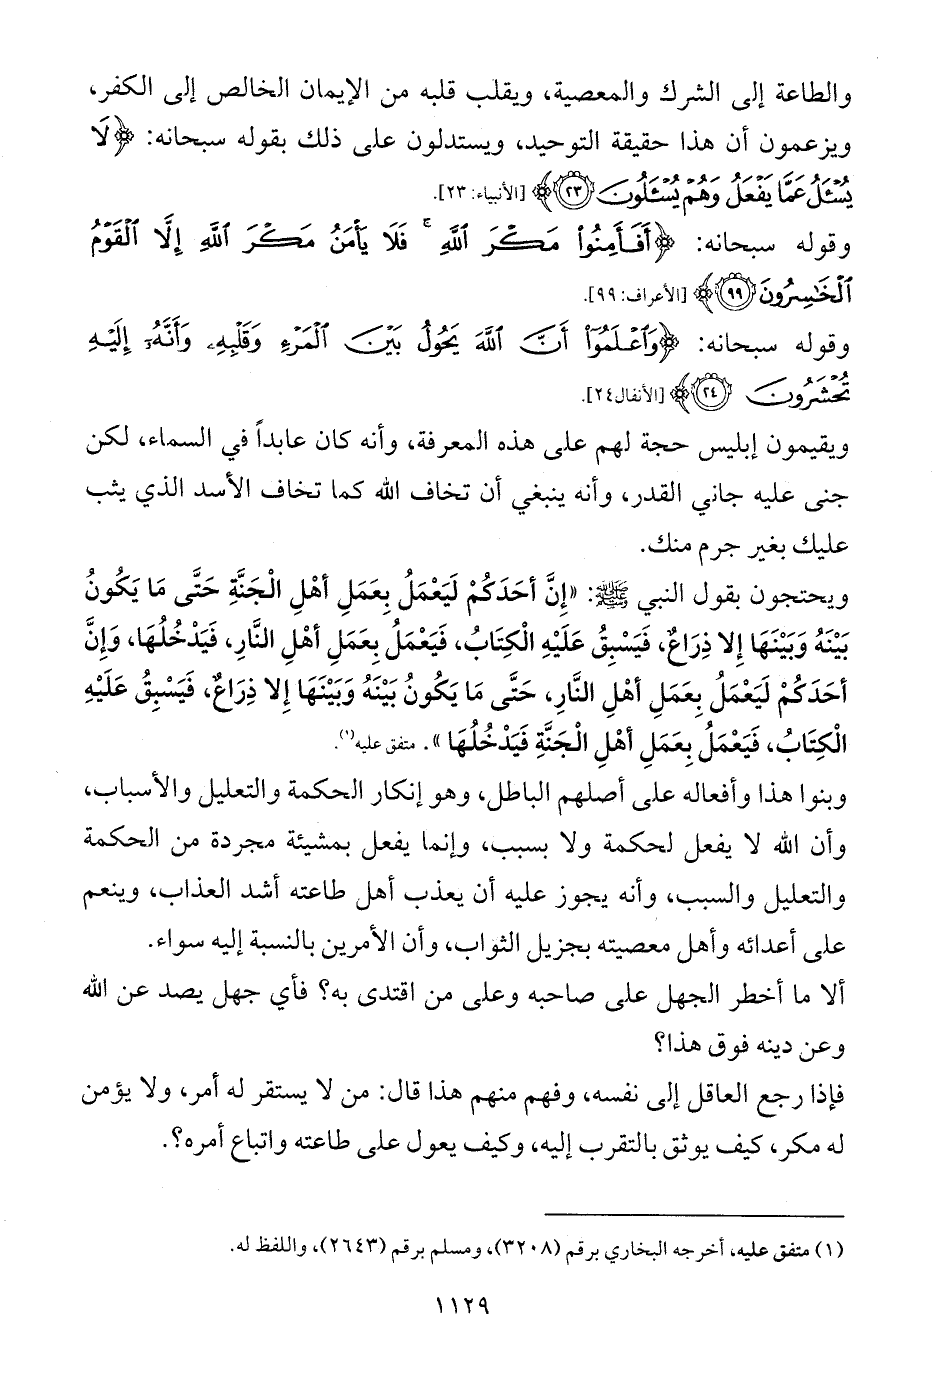 والطاعة إلى الشرك والمعصية، ويقلب قلبه من الإيمان الخالص إلى الكفر،
ويزعمون أن هذا حقيقة التوحيد، ويستدلون على ذلك بقوله سبحانه: ﴿لَا
يُسْـَٔلُ عَمَّا يَفْعَلُ وَهُمْ يُسْـَٔلُونَ ٢٣﴾ [الأنبياء: ٢٣].
وقوله سبحانه: ﴿أَفَأَمِنُوا۟ مَكْرَ ٱللَّهِ ۚ فَلَا يَأْمَنُ مَكْرَ ٱللَّهِ إِلَّا ٱلْقَوْمُ
ٱلْخَـٰسِرُونَ ٩٩﴾ [الأعراف: ٩٩].
وقوله سبحانه: ﴿وَٱعْلَمُوٓا۟ أَنَّ ٱللَّهَ يَحُولُ بَيْنَ ٱلْمَرْءِ وَقَلْبِهِۦ وَأَنَّهُۥٓ إِلَيْهِ
تُحْشَرُونَ ٢٤﴾ [الأنفال٢٤].
ويقيمون إبليس حجة لهم على هذه المعرفة، وأنه كان عابداً في السماء، لكن
جنى عليه جاني القدر، وأنه ينبغي أن تخاف الله كما تخاف الأسد الذي يثب
عليك بغير جرم منك.
ويحتجون بقول النبي ﷺ: «إِنَّ أَحَدَكُمْ لَيَعْمَلُ بِعَمَلِ أَهْلِ الْجَنَّةِ حَتَّى مَا يَكُونُ
بَيْنَهُ وَبَيْنَهَا إِلا ذِرَاعٌ، فَيَسْبِقُ عَلَيْهِ الْكِتَابُ، فَيَعْمَلُ بِعَمَلِ أَهْلِ النَّارِ، فَيَدْخُلُهَا، وَإِنَّ
أَحَدَكُمْ لَيَعْمَلُ بِعَمَلِ أَهْلِ النَّارِ، حَتَّى مَا يَكُونُ بَيْنَهُ وَبَيْنَهَا إِلا ذِرَاعٌ، فَيَسْبِقُ عَلَيْهِ
الْكِتَابُ، فَيَعْمَلُ بِعَمَلِ أَهْلِ الْجَنَّةِ فَيَدْخُلُهَا». متفق عليه(١).
وبنوا هذا وأفعاله على أصلهم الباطل، وهو إنكار الحكمة والتعليل والأسباب،
وأن الله لا يفعل لحكمة ولا بسبب، وإنما يفعل بمشيئة مجردة من الحكمة
والتعليل والسبب، وأنه يجوز عليه أن يعذب أهل طاعته أشد العذاب، وينعم
على أعدائه وأهل معصيته بجزيل الثواب، وأن الأمرين بالنسبة إليه سواء.
ألا ما أخطر الجهل على صاحبه وعلى من اقتدى به؟ فأي جهل يصد عن الله
وعن دينه فوق هذا؟
فإذا رجع العاقل إلى نفسه، وفهم منهم هذا قال: من لا يستقر له أمر، ولا يؤمن
له مكر، كيف يوثق بالتقرب إليه، وكيف يعول على طاعته واتباع أمره؟.
(١) متفق عليه، أخرجه البخاري برقم (٣٢٠٨)، ومسلم برقم (٢٦٤٣)، واللفظ له.
١١٢٩